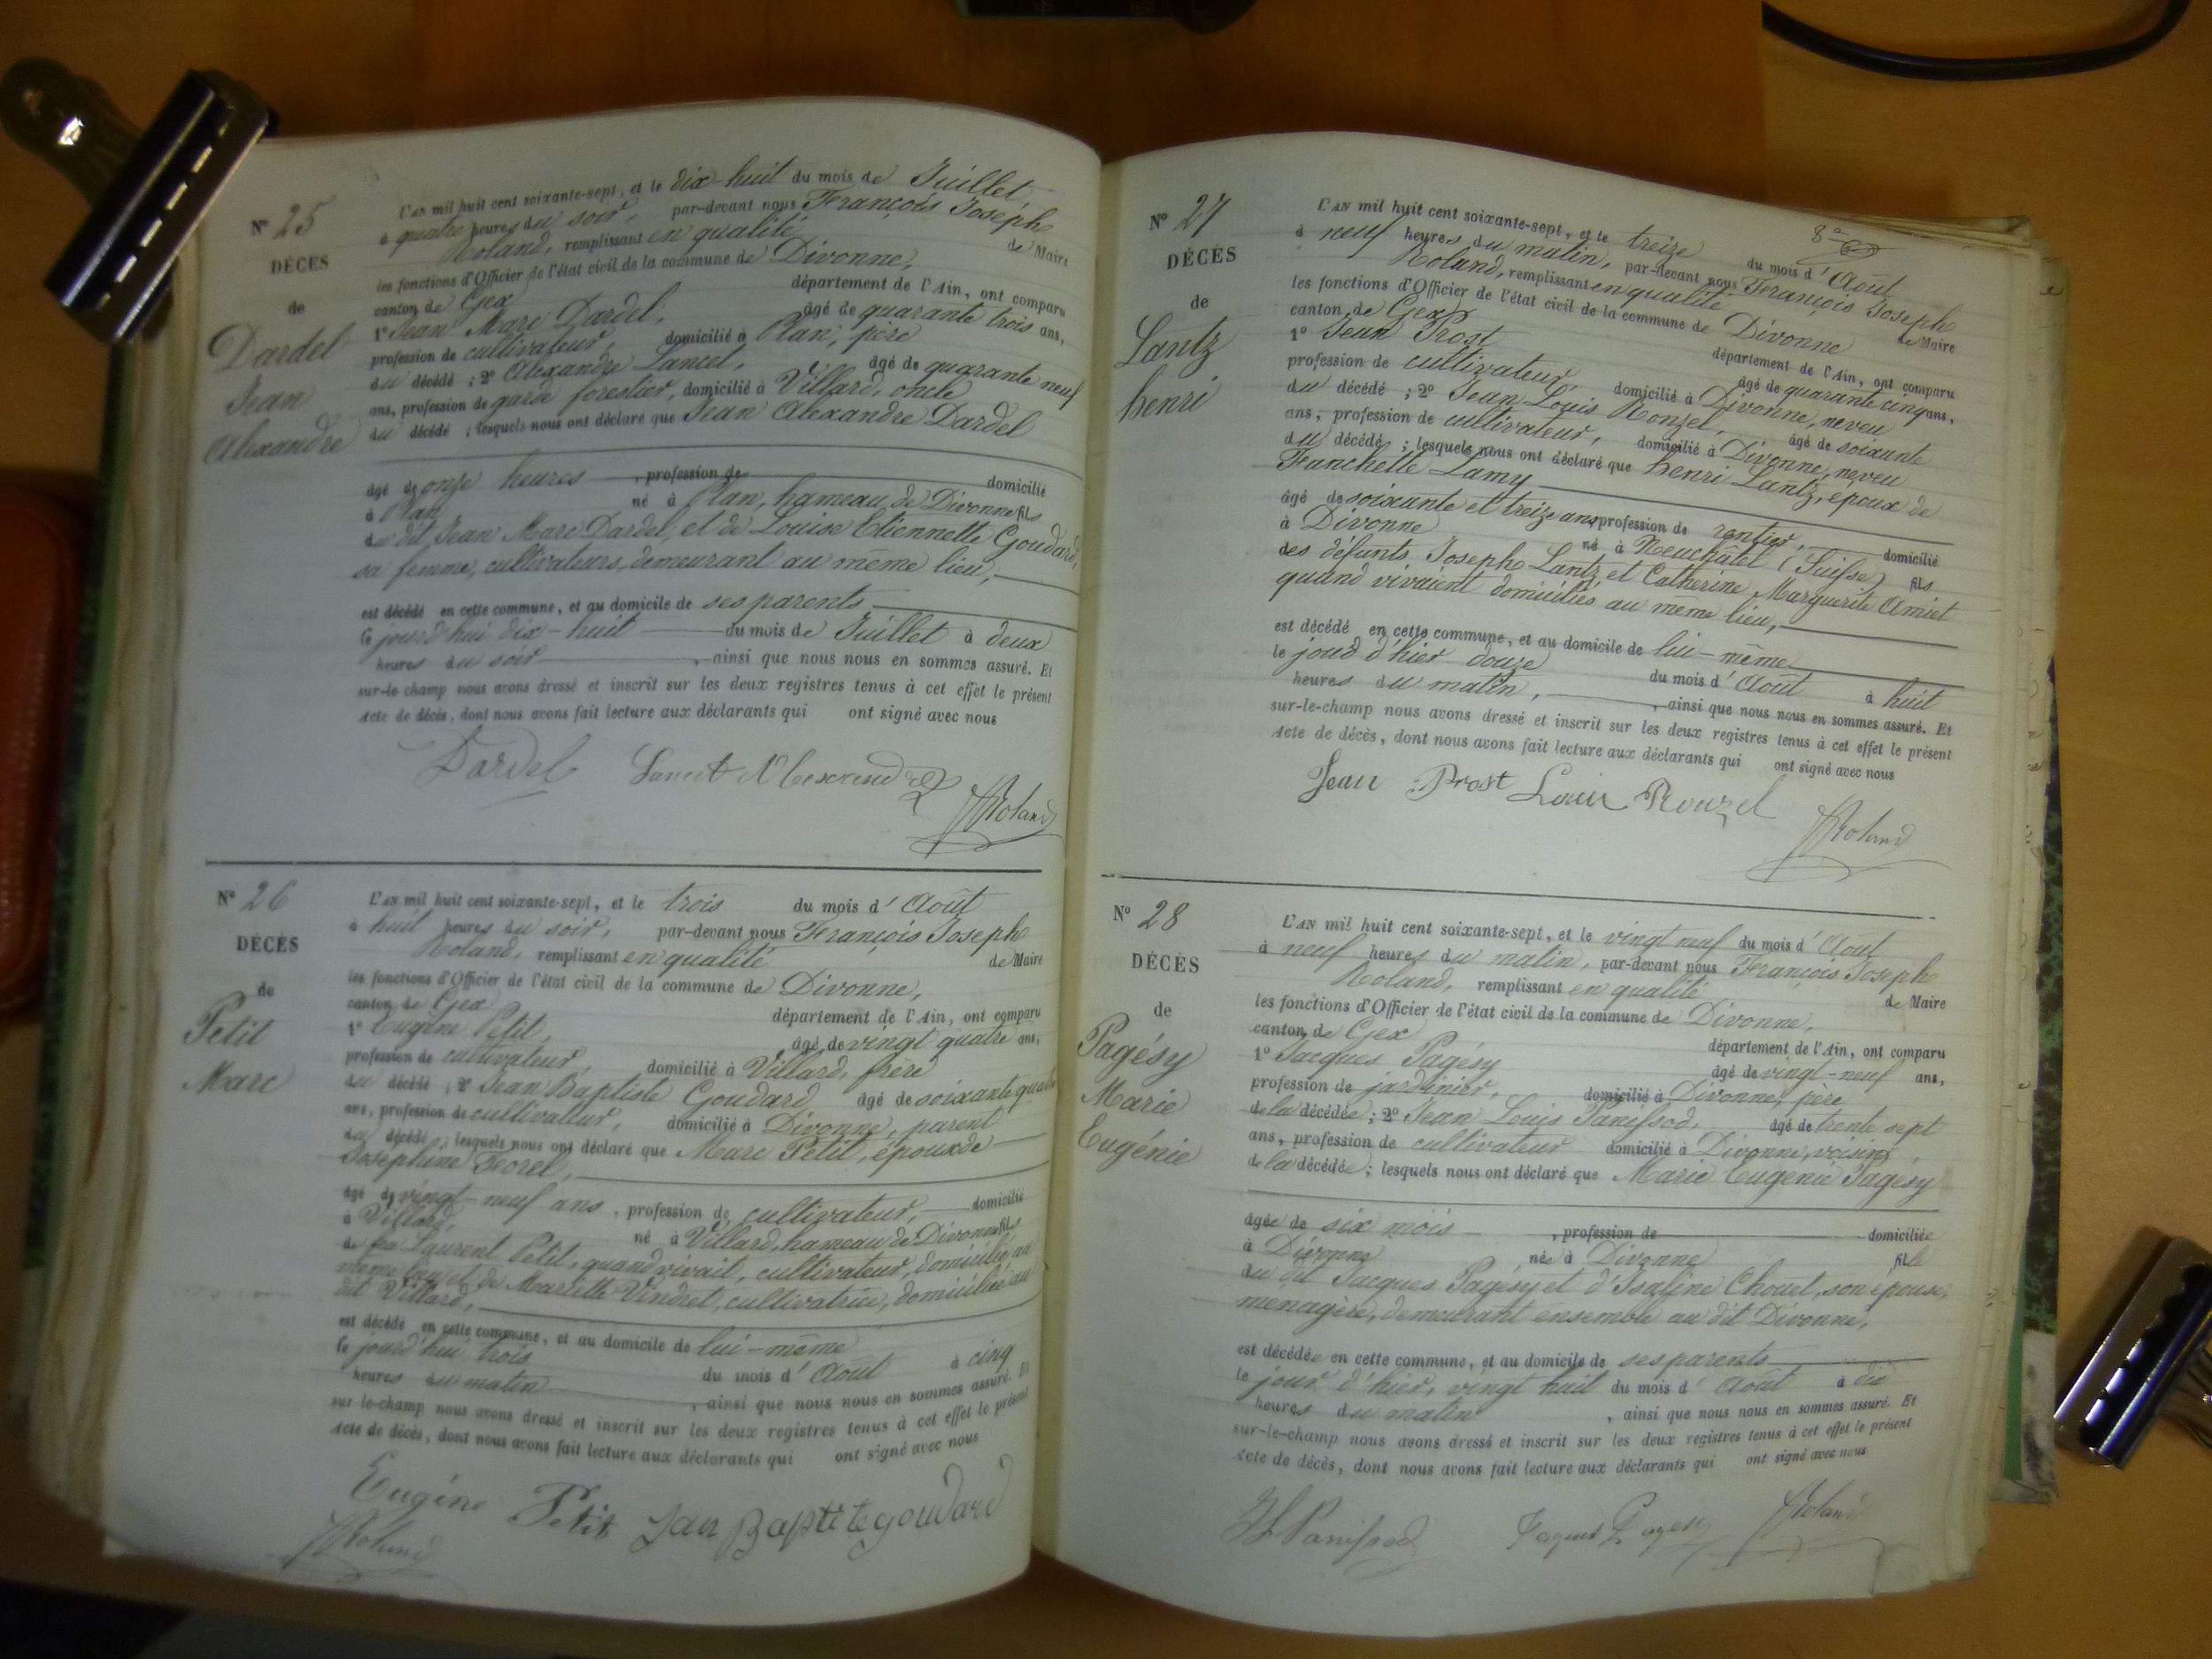 N° 25
DÉCES
de
Dardel
Jean
Alexandre
L'AN mil huit cent soixante-sept, et le dix-huit du mois de Juillet,
à quatre heures du soir, par-devant nous François Joseph
Roland, remplissant en qualité de Maire
les fonctions d'Officier de l'état civil de la commune de Divonne,
canton de Gex département de l'Ain, ont comparu
1° Jean Marc Dardel, âgé de quarante trois ans,
profession de cultivateur, domicilié à Plan, père
du décédé ; 2° Alexandre Lancet, âgé de quarante neuf
ans, profession de garde forestier, domicilié à Villard, oncle
du décédé ; lesquels nous ont déclaré que Jean Alexandre Dardel
âgé de onze heures , profession de domicilié
à Plan né à Plan, hameau de Divonne fils
du dit Jean Marc Dardel, et de Louise Etiennette Goudard,
sa femme, cultivateurs, demeurant au même lieu,
est décédé en cette commune, et au domicile de ses parents
le jourd'hui dix-huit du mois de Juillet à deux
heures du soir , ainsi que nous nous en sommes assuré. Et
sur-le-champ nous avons dressé et inscrit sur les deux registres tenus à cet effet le présent
Acte de décès, dont nous avons fait lecture aux déclarants qui ont signé avec nous
Dardel Lancet Alexandre
Roland
N° 26
DÉCÈS
de
Petit
Marc
L'AN mil huit cent soixante-sept, et le trois du mois d'Août
à huit heures du soir, par-devant nous François Joseph
Roland, remplissant en qualité de Maire
les fonctions d'Officier de l'état civil de la commune de Divonne,
canton de Gex département de l'Ain, ont comparu
1° Eugène Petit, âgé de vingt quatre ans,
profession de cultivateur, domicilié à Villard, frère
du décédé ; 2° Jean Baptiste Goudard âgé de soixante quatre
ans, profession de cultivateur, domicilié à Divonne, parent
du décédé ; lesquels nous ont déclaré que Marc Petit, époux de
Joséphine Forel,
âgé de vingt-neuf ans , profession de cultivateur, domicilié
à Villard, né à Villard, hameau de Divonne fils
de feu Laurent Petit, quand vivait, cultivateur, domicilié au
même lieu et de Mariette Vindret, cultivatrice, domiciliée au
dit Villard,
est décédé en cette commune, et au domicile de lui-même
le jourd'hui trois du mois d'Août à cinq
heures du matin , ainsi que nous nous en sommes assuré. Et
sur-le-champ nous avons dressé et inscrit sur les deux registres tenus à cet effet le présent
Acte de décès, dont nous avons fait lecture aux déclarants qui ont signé avec nous
Eugéne Petit Jan Baptiste goudard
Roland
N° 27
DÉCÈS
de
Lantz
henri
L'AN mil huit cent soixante-sept, et le treize du mois d'Août
à neuf heures du matin, par-devant nous François Joseph
Roland, remplissant en qualité de Maire
les fonctions d'Officier de l'état civil de la commune de Divonne
canton de Gex département de l'Ain, ont comparu
1° Jean Prost âgé de quarante cinq ans,
profession de cultivateur, domicilié à Divonne, neveu
du décédé ; 2° Jean Louis Rouzel, âgé de soixante
ans, profession de cultivateur, domicilié à Divonne, neveu
du décédé ; lesquels nous ont déclaré que henri Lantz, époux de
Franchette Lamy
âgé de soixante et treize ans, profession de rentier, domicilié
à Divonne né à Neuchâtel (Suisse) fils
des défunts Joseph Lantz et Catherine Marguerite Amiet
quand vivaient domiciliés au même lieu,
est décédé en cette commune, et au domicile de lui-même
le jour d'hier douze du mois d'Août à huit
heures du matin, , ainsi que nous nous en sommes assuré. Et
sur-le-champ nous avons dressé et inscrit sur les deux registres tenus à cet effet le présent
Acte de décès, dont nous avons fait lecture aux déclarants qui ont signé avec nous
Jean Prost Louis Rouzel
Roland
N° 28
DÉCÈS
de
Pagésy
Marie
Eugénie
L'AN mil huit cent soixante-sept, et le vingt neuf du mois d'Août
à neuf heures du matin, par-devant nous François Joseph
Roland, remplissant en qualité de Maire
les fonctions d'Officier de l'état civil de la commune de Divonne,
canton de Gex département de l'Ain, ont comparu
1° Jacques Pagésy âgé de vingt-neuf ans,
profession de jardinier, domicilié à Divonne, père
de la décédée ; 2° Jean Louis Panissod, âgé de trente sept
ans, profession de cultivateur domicilié à Divonne, voisin
de la décédée ; lesquels nous ont déclaré que Marie Eugénie Pagésy
âgée de six mois , profession de domiciliée
à Divonne née à Divonne fille
du dit Jacques Pagésy et d'Isaline Chouet, son épouse,
ménagère, demeurant ensemble au dit Divonne,
est décédée en cette commune, et au domicile de ses parents
le jour d'hier, vingt huit du mois d'Août à dix
heures du matin , ainsi que nous nous en sommes assuré. Et
sur-le-champ nous avons dressé et inscrit sur les deux registres tenus à cet effet le présent
Acte de décès, dont nous avons fait lecture aux déclarants qui ont signé avec nous
JL Panissod Jaques Pagésy Roland